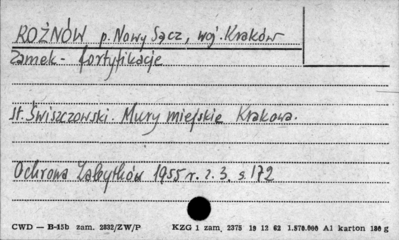 ROŻNÓW p. Nowy Sącz, woj. Kraków
Zamek - fortyfikacje
St. Świszczowski. Mury miejskie Krakowa.
Ochrona Zabytków 1955 r. z. 3. s. 172
CWD — B-15b zam. 2032/ZW/P KZG 1 zam. 2375 19 12 62 1.570.000 A1 karton 180 g